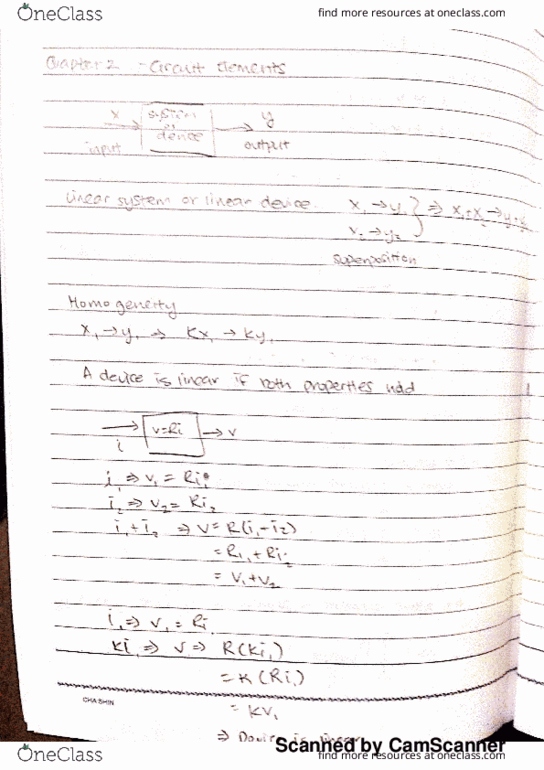 OneClass
find more resources at oneclass.com
Chapter 2 - Circuit Elements
x system or device y
input output
Linear system or linear device. x₁→y₁ } ⇒ x₁+x₂→y₁+y₂
x₂→y₂
superposition
Homogeneity
x₁→y₁ ⇒ Kx₁ → Ky₁
A device is linear if both properties hold
i → v=Ri → v
i₁ ⇒ v₁ = Ri₁
i₂ ⇒ v₂ = Ri₂
i₁+i₂ ⇒ v = R(i₁-i₂)
= Ri₁ + Ri₂
= v₁+v₂
i₁ ⇒ v₁ = Ri₁
Ki₁ ⇒ v ⇒ R(Ki₁)
= K(Ri₁)
= KV₁
⇒ Device is linear
CHA SHIN
Scanned by CamScanner
OneClass
find more resources at oneclass.com